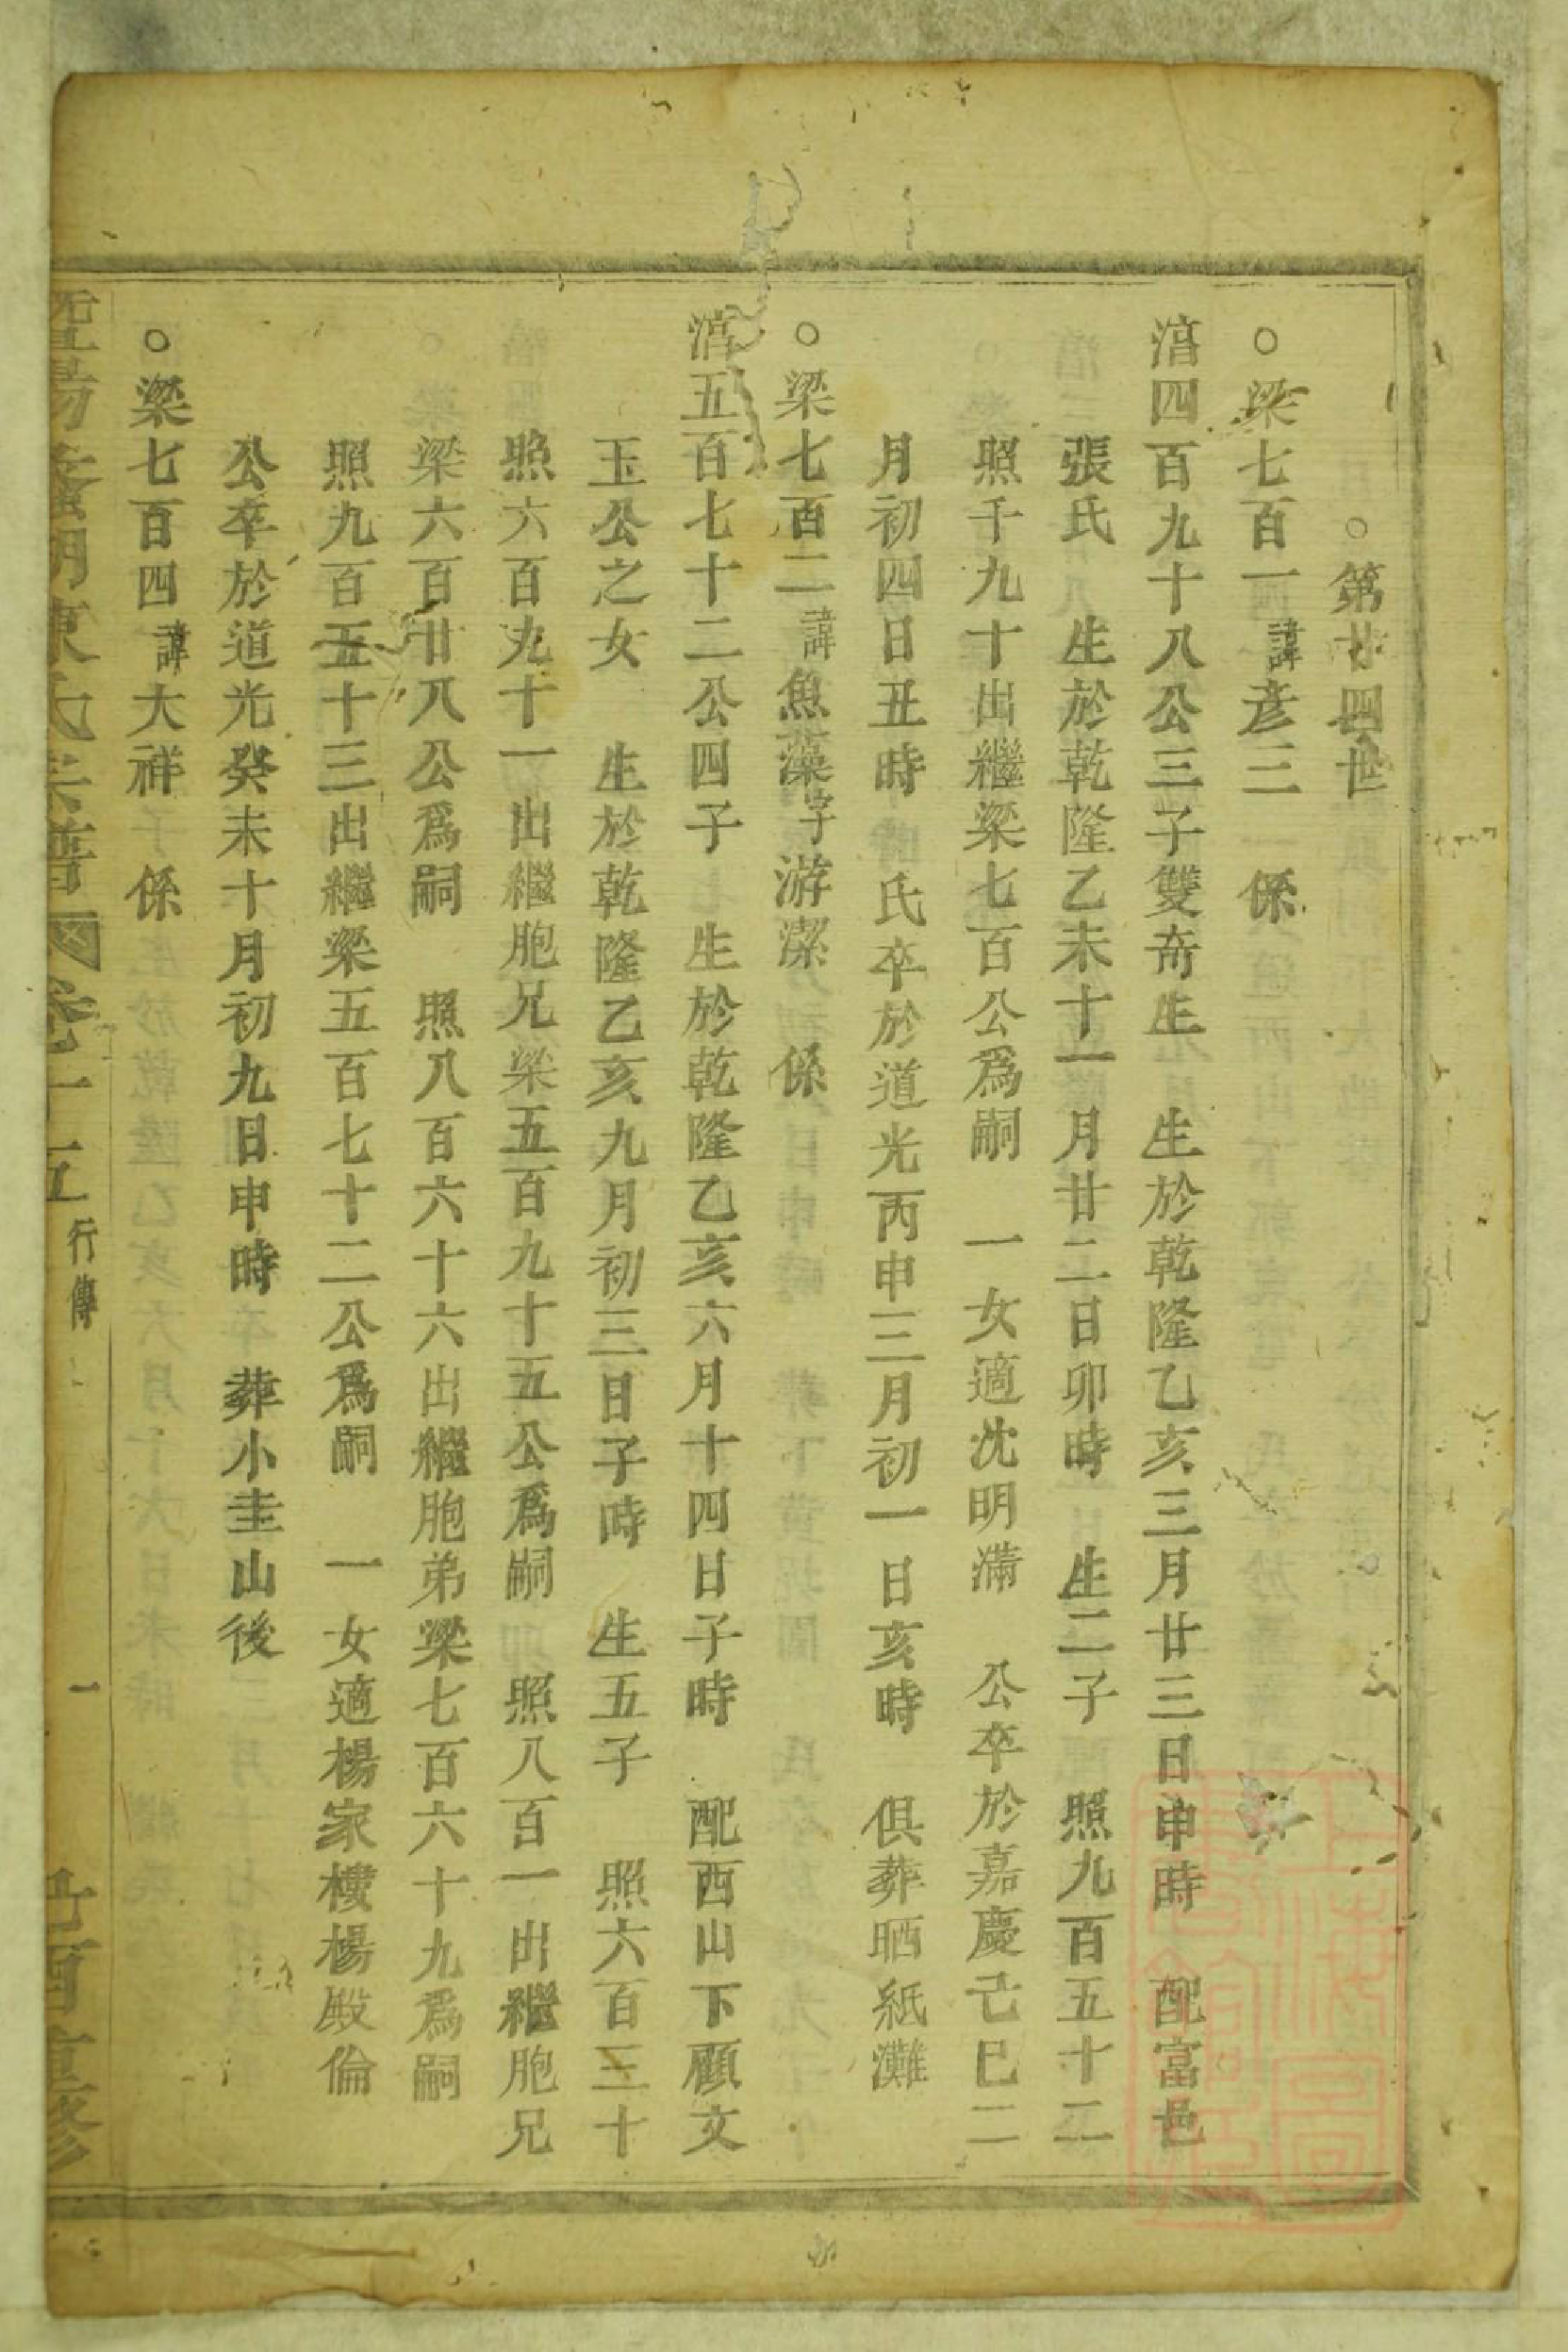 ○第廿四世
○梁七百一諱彦三　係
湻四百九十八公三子雙奇生　生於乾隆乙亥三月廿三日申時　配富邑
張氏　生於乾隆乙未十一月廿二日卯時　生二子　照九百五十二
照千九十出繼梁七百公爲嗣　一女適沈明滿　公卒於嘉慶己巳二
月初四日丑時　氏卒於道光丙申三月初一日亥時　俱葬晒紙灘
○梁七百二諱魚藻字游潔　係
湻五百七十二公四子　生於乾隆乙亥六月十四日子時　配西山下顧文
玉公之女　生於乾隆乙亥九月初三日子時　生五子　照六百三十
照六百九十一出繼胞兄梁五百九十五公爲嗣　照八百一出繼胞兄
梁六百廿八公爲嗣　照八百六十六出繼胞弟梁七百六十九爲嗣
照九百五十三出繼梁五百七十二公爲嗣　一女適楊家樓楊殿倫
公卒於道光癸未十月初九日申時　葬小圭山後
○梁七百四諱大祥　係
氏宗譜卷十五行傳　一　重修